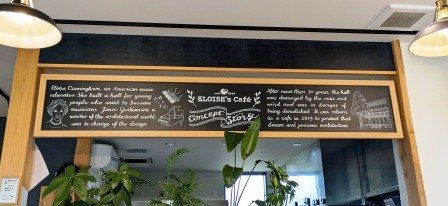 Eloise Cunningham, an American music
educator. She built a hall for young
people who want to become
musicians. Junzo Yoshimura, a
master of the architectural world,
was in charge of the design.
ELOISE's Café
Concept Story
After more than 30 years, the hall
was damaged by the rain and
wind and was in danger of
being demolished. It was reborn
as a cafe in 2015 to protect that
dream and precious architecture.